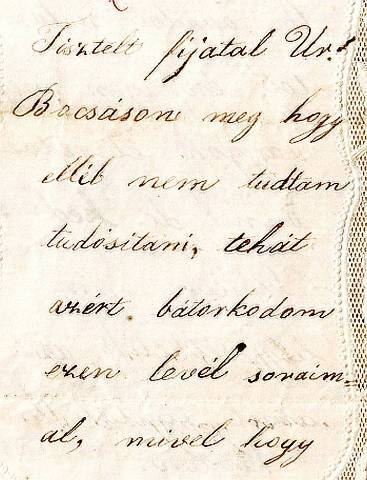 Tisztelt fijatal Ur!
Bocsáson meg hogy
elléb nem tudtam
tudósitani, tehát
azért bátorkodom
ezen levél soraim=
al, mivel hogy